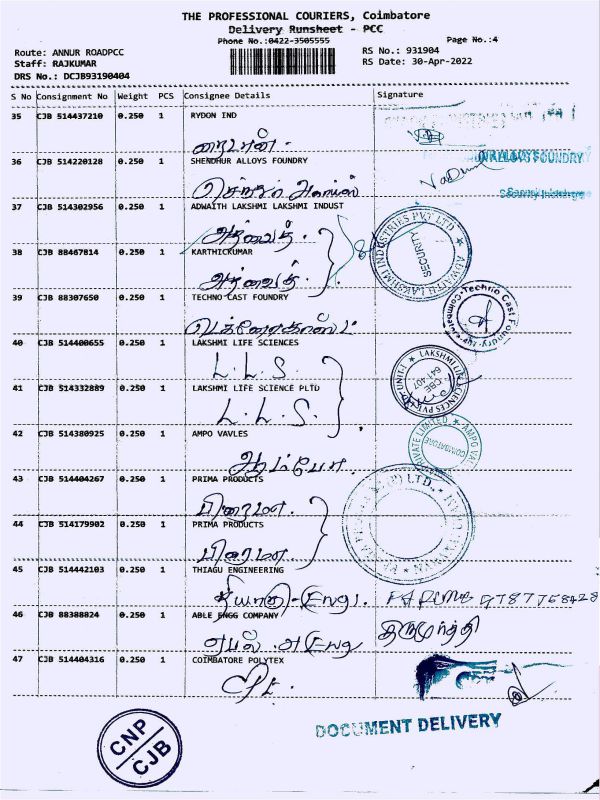 THE PROFESSIONAL COURIERS, Coimbatore
Delivery Runsheet - PCC
Phone No.:0422-3505555
Page No.:4
Route: ANNUR ROADPCC
RS No.: 931904
Staff: RAJKUMAR
RS Date: 30-Apr-2022
DRS No.: DCJB93190404
S No Consignment No Weight PCS Consignee Details Signature
35 CJB 514437210 0.250 1 RYDON IND
36 CJB 514220128 0.250 1 SHENDHUR ALLOYS FOUNDRY
37 CJB 514302956 0.250 1 ADWAITH LAKSHMI LAKSHMI INDUST
அத்வைத்.
ADWAITH LAKSHMI INDUSTRIES PVT LTD
SECURITY
38 CJB 88467814 0.250 1 KARTHICKUMAR
அத்வைத்.
39 CJB 88307650 0.250 1 TECHNO CAST FOUNDRY
Techno Cast Foundry
40 CJB 514400655 0.250 1 LAKSHMI LIFE SCIENCES
L. L. S.
41 CJB 514332889 0.250 1 LAKSHMI LIFE SCIENCE PLTD
L. L. S.
LAKSHMI LIFE SCIENCES PVT
UNIT-I
CBE
641 407
42 CJB 514380925 0.250 1 AMPO VAVLES
ஆம்போ.
PRIVATE LIMITED
COIMBATORE
43 CJB 514404267 0.250 1 PRIMA PRODUCTS
பிரைமா.
44 CJB 514179902 0.250 1 PRIMA PRODUCTS
பிரைமா.
45 CJB 514442103 0.250 1 THIAGU ENGINEERING
தியாகு - Eng.
46 CJB 88388824 0.250 1 ABLE ENGG COMPANY
ஏபல் Eng
திருமூர்த்தி
47 CJB 514404316 0.250 1 COIMBATORE POLYTEX
DOCUMENT DELIVERY
CNP
CJB